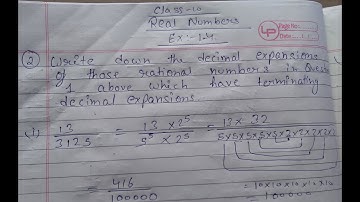 Class-10
Real Numbers
Ex:-1.4
LP
Page No.:
Date:
② Write down the decimal expansions
of those rational numbers in Question
1 above which have terminating
decimal expansions
(i) 13/3125 = 13 × 2⁵/5⁵ × 2⁵ = 13 × 32/5×5×5×5×5×2×2×2×2×2
= 416/100000 = 10×10×10×10×10
= 100000